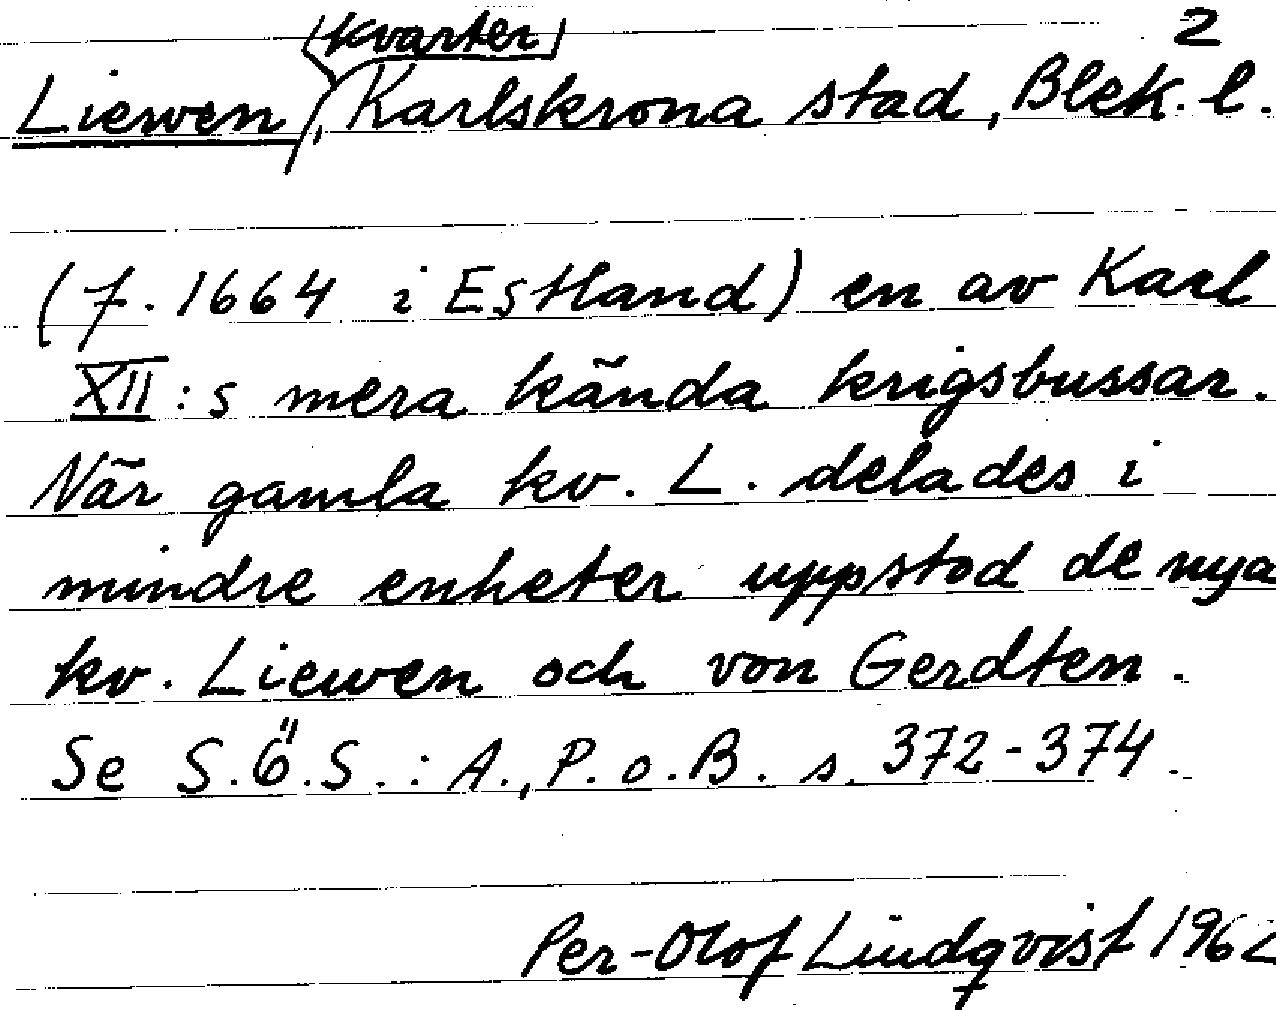 2
(kvarter)
Liewen, Karlskrona stad, Blek. l.
(f. 1664 i Estland) en av Karl
XII:s mera kända krigsbussar.
När gamla kv. L. delades i
mindre enheter uppstod de nya
kv. Liewen och von Gerdten.
Se S.Ö.S.: A., P. o. B. s. 372-374.
Per-Olof Lindqvist 1962